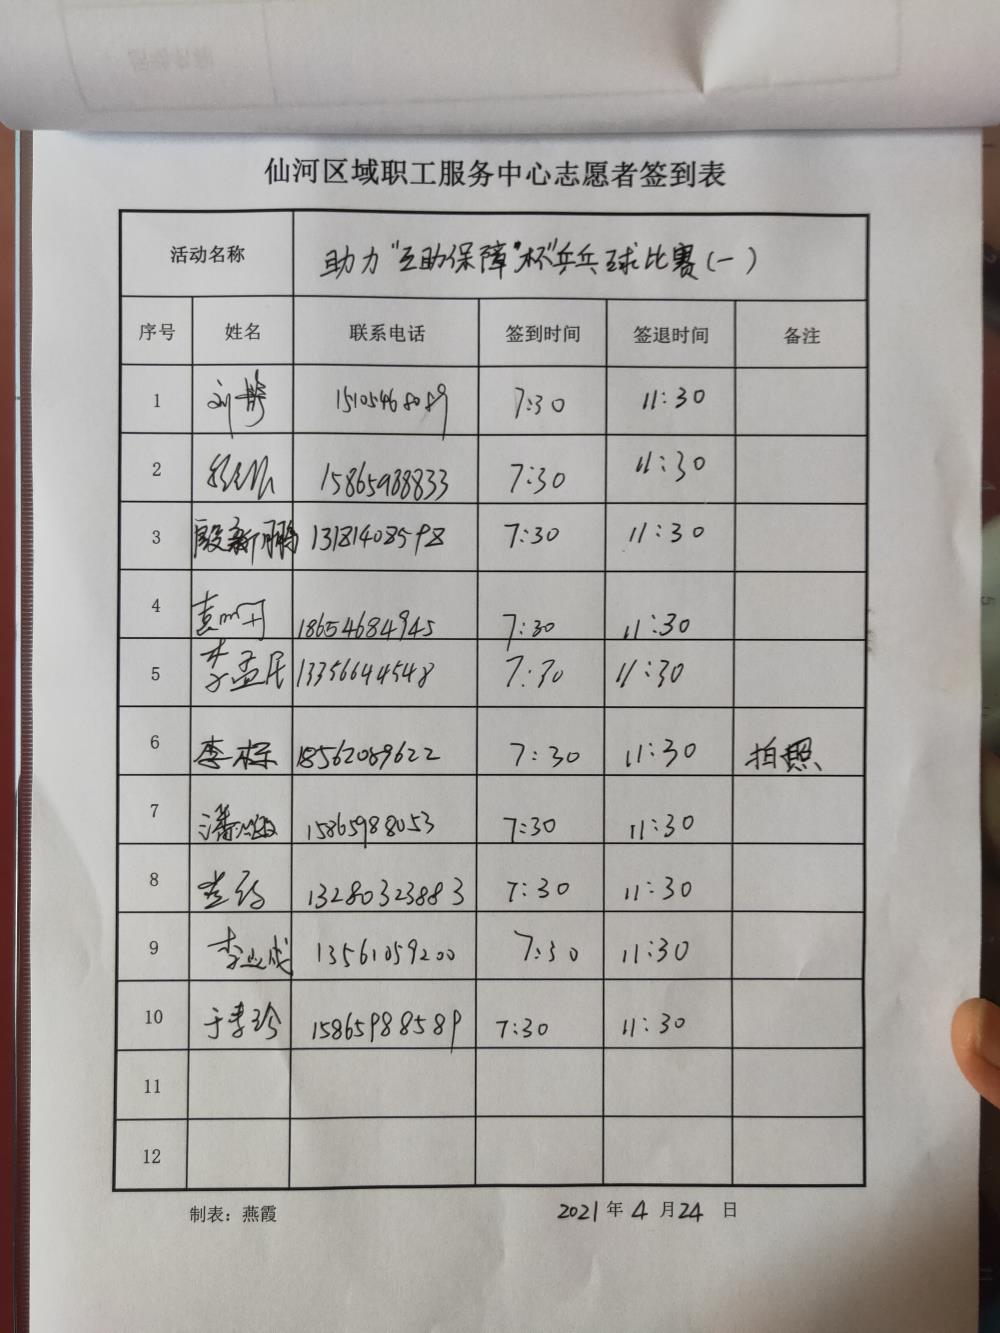 仙河区域职工服务中心志愿者签到表
活动名称 助力"互助保障"杯"乒乓球比赛(一)
序号 姓名 联系电话 签到时间 签退时间 备注
1 刘 15105468089 7:30 11:30
2 15865988833 7:30 11:30
3 殷新鹏 13181408598 7:30 11:30
4 袁 18654684945 7:30 11:30
5 李孟民 13356644548 7:30 11:30
6 李栋 18562089622 7:30 11:30 拍照
7 潘 15865988053 7:30 11:30
8 13280323883 7:30 11:30
9 李 成 13561059200 7:30 11:30
10 于李珍 15865988589 7:30 11:30
11
12
制表：燕霞 2021年4月24日